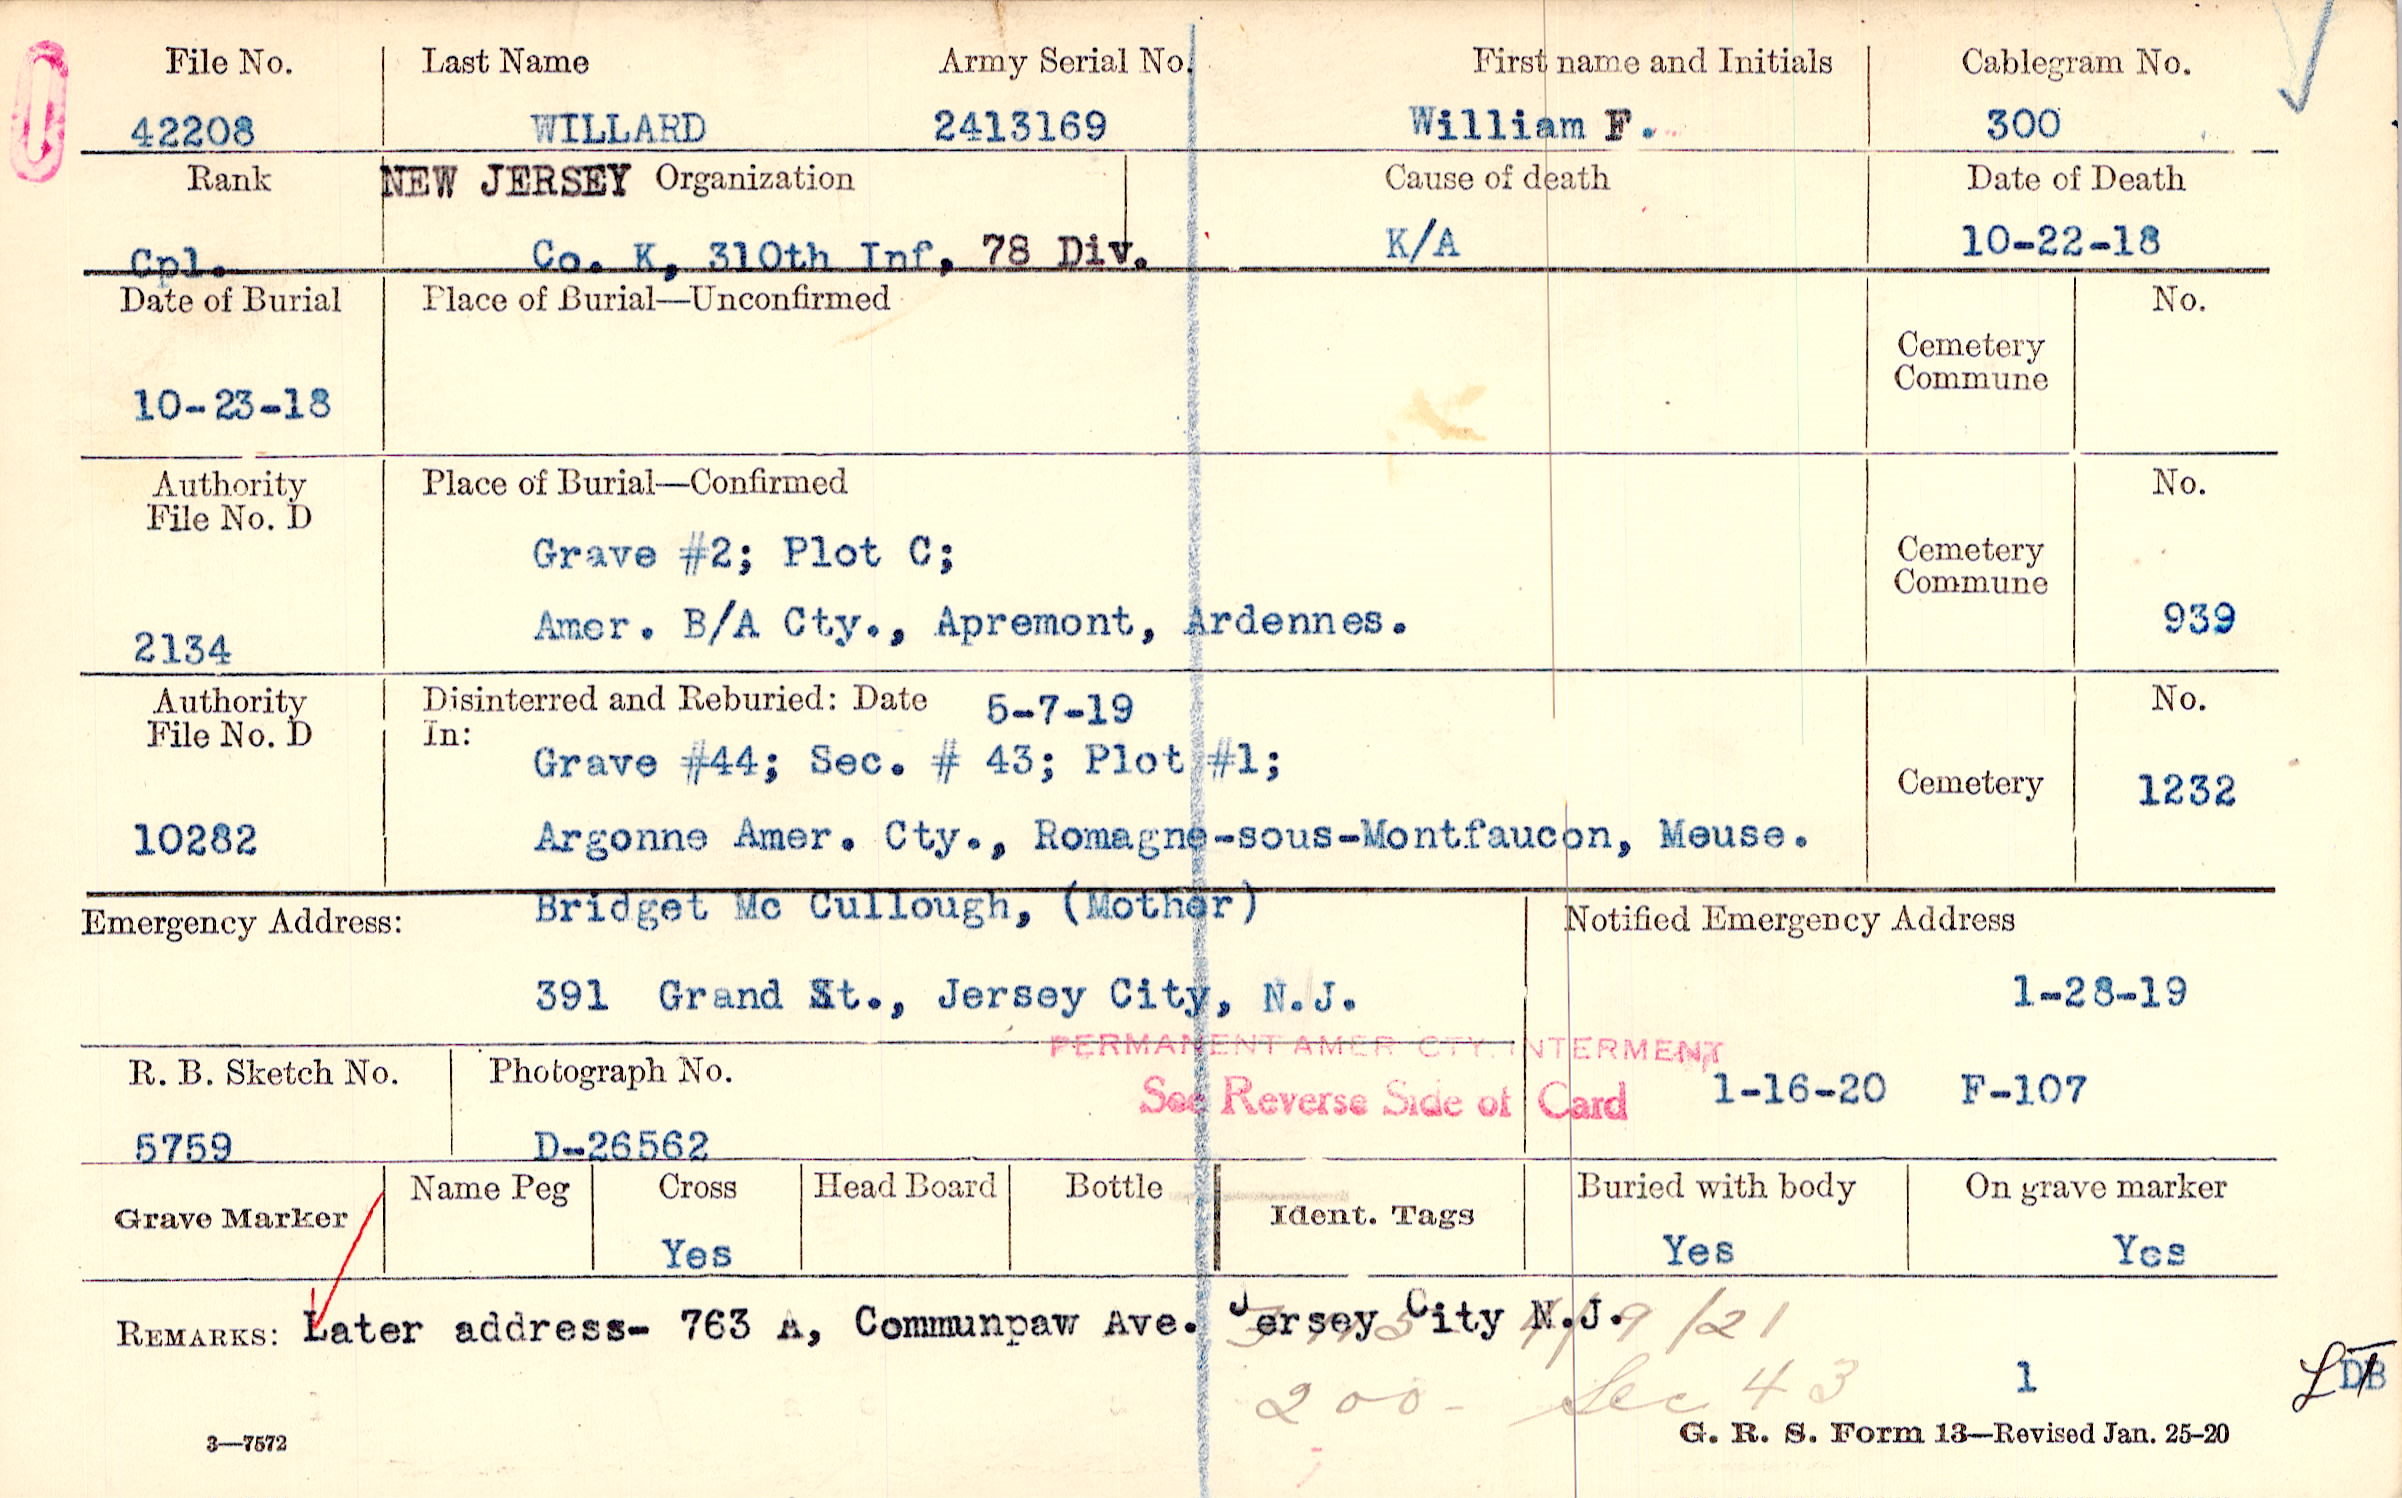 File No. Last Name Army Serial No. First name and Initials Cablegram No.
42208 WILLARD 2413169 William F. 300
Rank NEW JERSEY Organization Cause of death Date of Death
Cpl. Co. K, 310th Inf, 78 Div. K/A 10-22-18
Date of Burial Place of Burial—Unconfirmed No.
Cemetery
Commune
10-23-18
Authority Place of Burial—Confirmed No.
File No. D
Grave #2; Plot C; Cemetery
Commune
Amer. B/A Cty., Apremont, Ardennes. 939
2134
Authority Disinterred and Reburied: Date 5-7-19 No.
File No. D In:
Grave #44; Sec. # 43; Plot #1;
Cemetery 1232
10282 Argonne Amer. Cty., Romagne-sous-Montfaucon, Meuse.
Emergency Address: Bridget Mc Cullough, (Mother) Notified Emergency Address
391 Grand St., Jersey City, N.J. 1-28-19
PERMANENT AMER CTY. INTERMENT
R. B. Sketch No. Photograph No. See Reverse Side of Card 1-16-20 F-107
5759 D-26562
Grave Marker Name Peg Cross Head Board Bottle Ident. Tags Buried with body On grave marker
Yes Yes Yes
REMARKS: Later address- 763 A, Communpaw Ave. Jersey City N.J. 9/21
200- Sec 43 1 DB
3—7572 G. R. S. Form 13—Revised Jan. 25-20